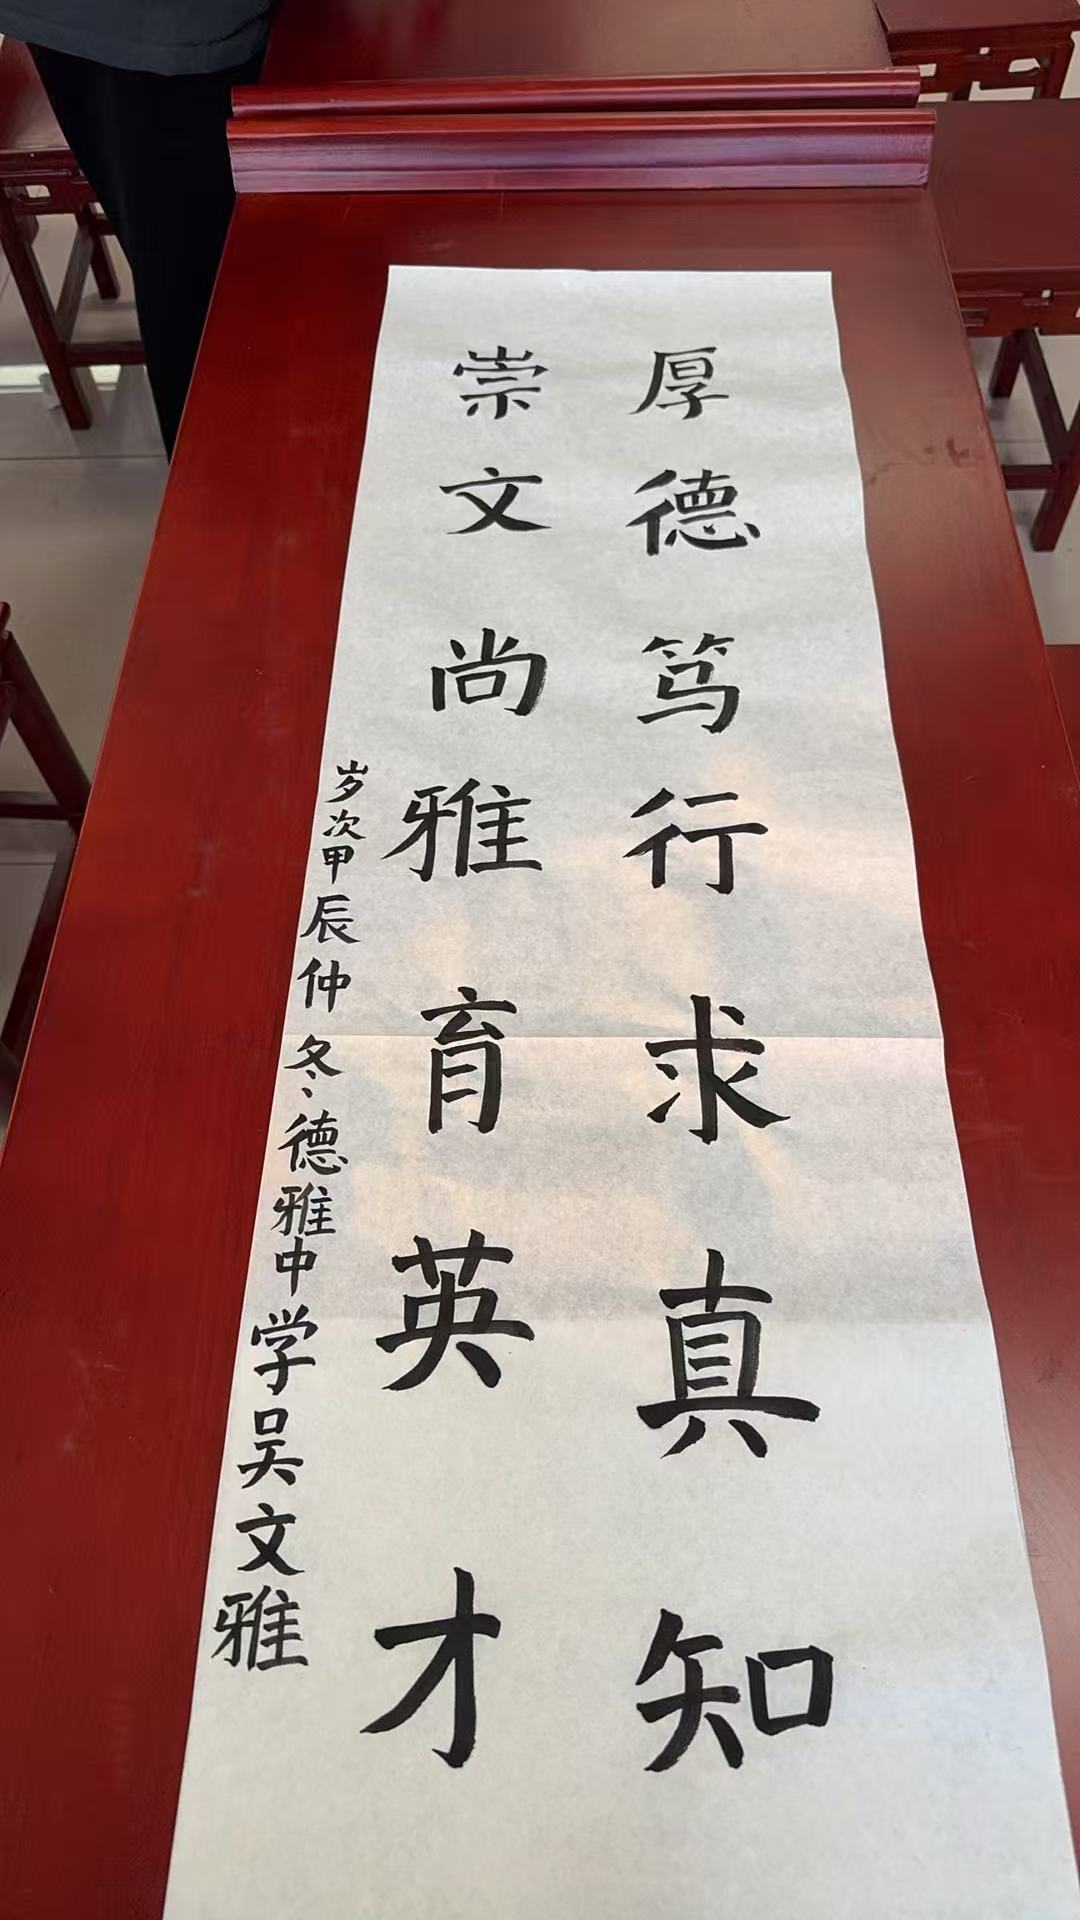 厚德笃行求真知
崇文尚雅育英才
岁次甲辰仲冬德雅中学吴文雅